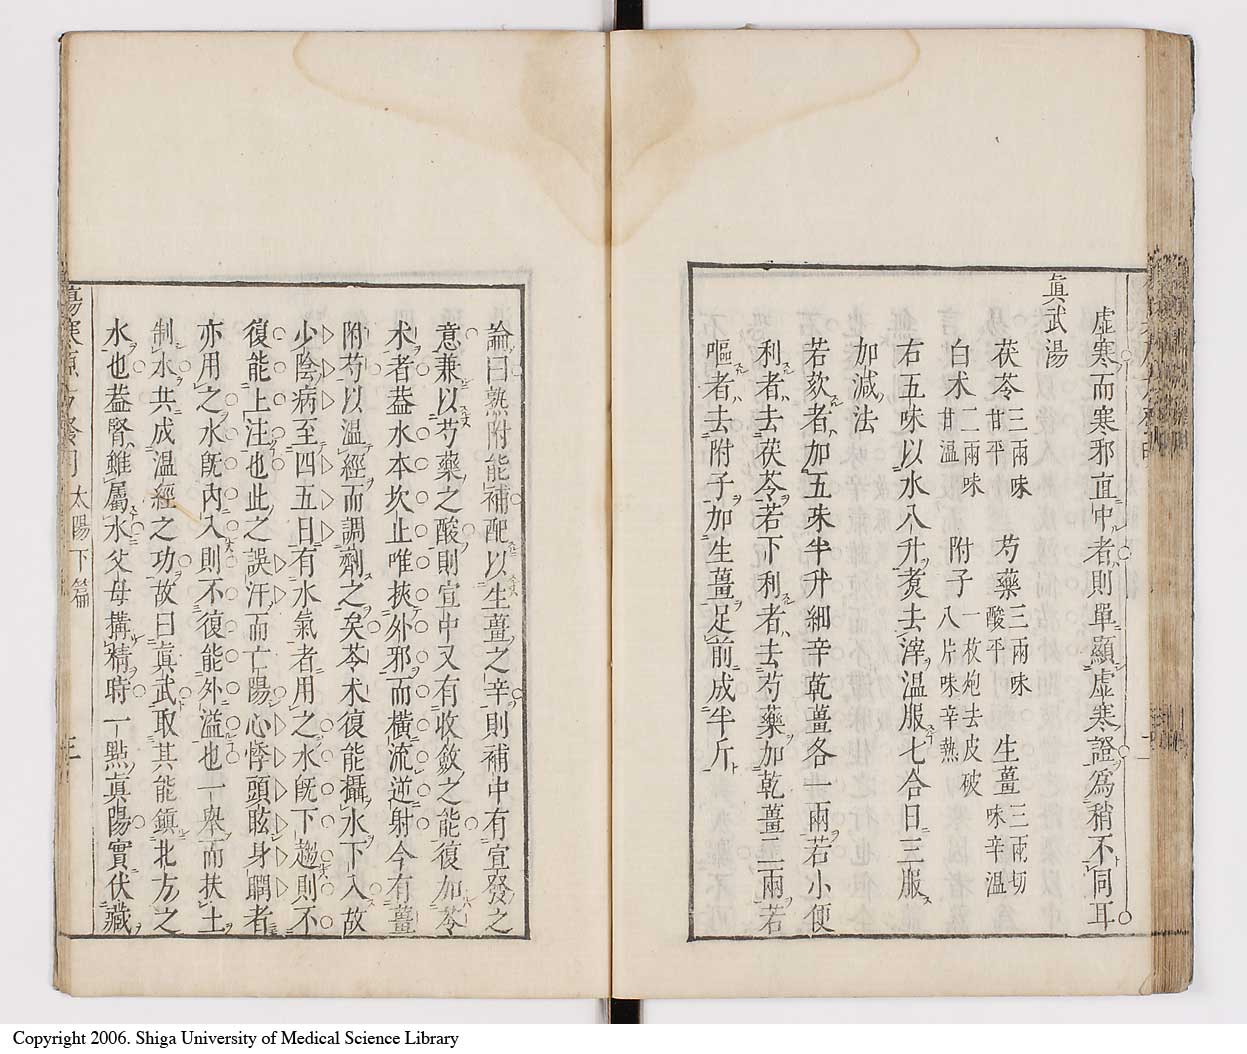 虛寒而寒邪直中者則單顯虛寒證爲稍不同耳
眞武湯
茯苓三兩味甘平 芍藥三兩味酸平 生薑三兩切味辛溫
白朮二兩味甘溫 附子一枚炮去皮破八片味辛熱
右五味以水八升煑去滓溫服七合日三服
加減法
若欬者加五味半升細辛乾薑各一兩若小便
利者去茯苓若下利者去芍藥加乾薑二兩若
嘔者去附子加生薑足前成半斤
論曰熟附能補配以生薑之辛則補中有宣發之
意兼以芍藥之酸則宣中又有收斂之能復加苓
朮者葢水本坎止唯挾外邪而橫流逆射今有薑
附芍以溫經而調劑之矣苓朮復能攝水下入故
少陰病至四五日有水氣者用之水旣下趨則不
復能上注也此之誤汗而亡陽心悸頭眩身瞤者
亦用之水旣內入則不復能外溢也一舉而扶土
制水共成溫經之功故曰眞武取其能鎮北方之
水也葢腎雖屬水父母搆精時一點眞陽實伏藏
太陽下篇
Copyright 2006. Shiga University of Medical Science Library